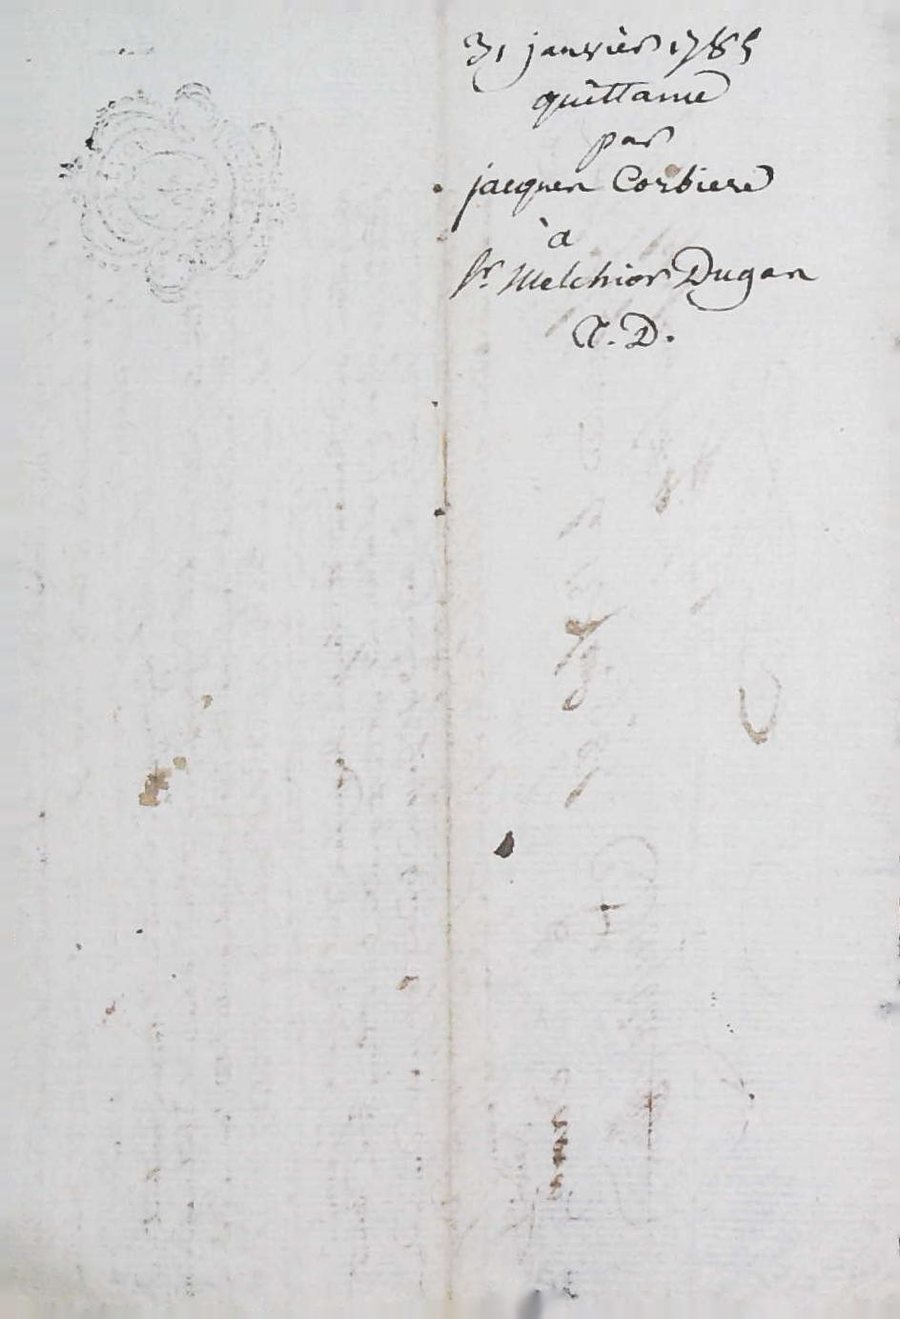 31 janvier 1785
quittance
par
jacques Corbiere
à
Sr. Melchior Dugas
N. D.